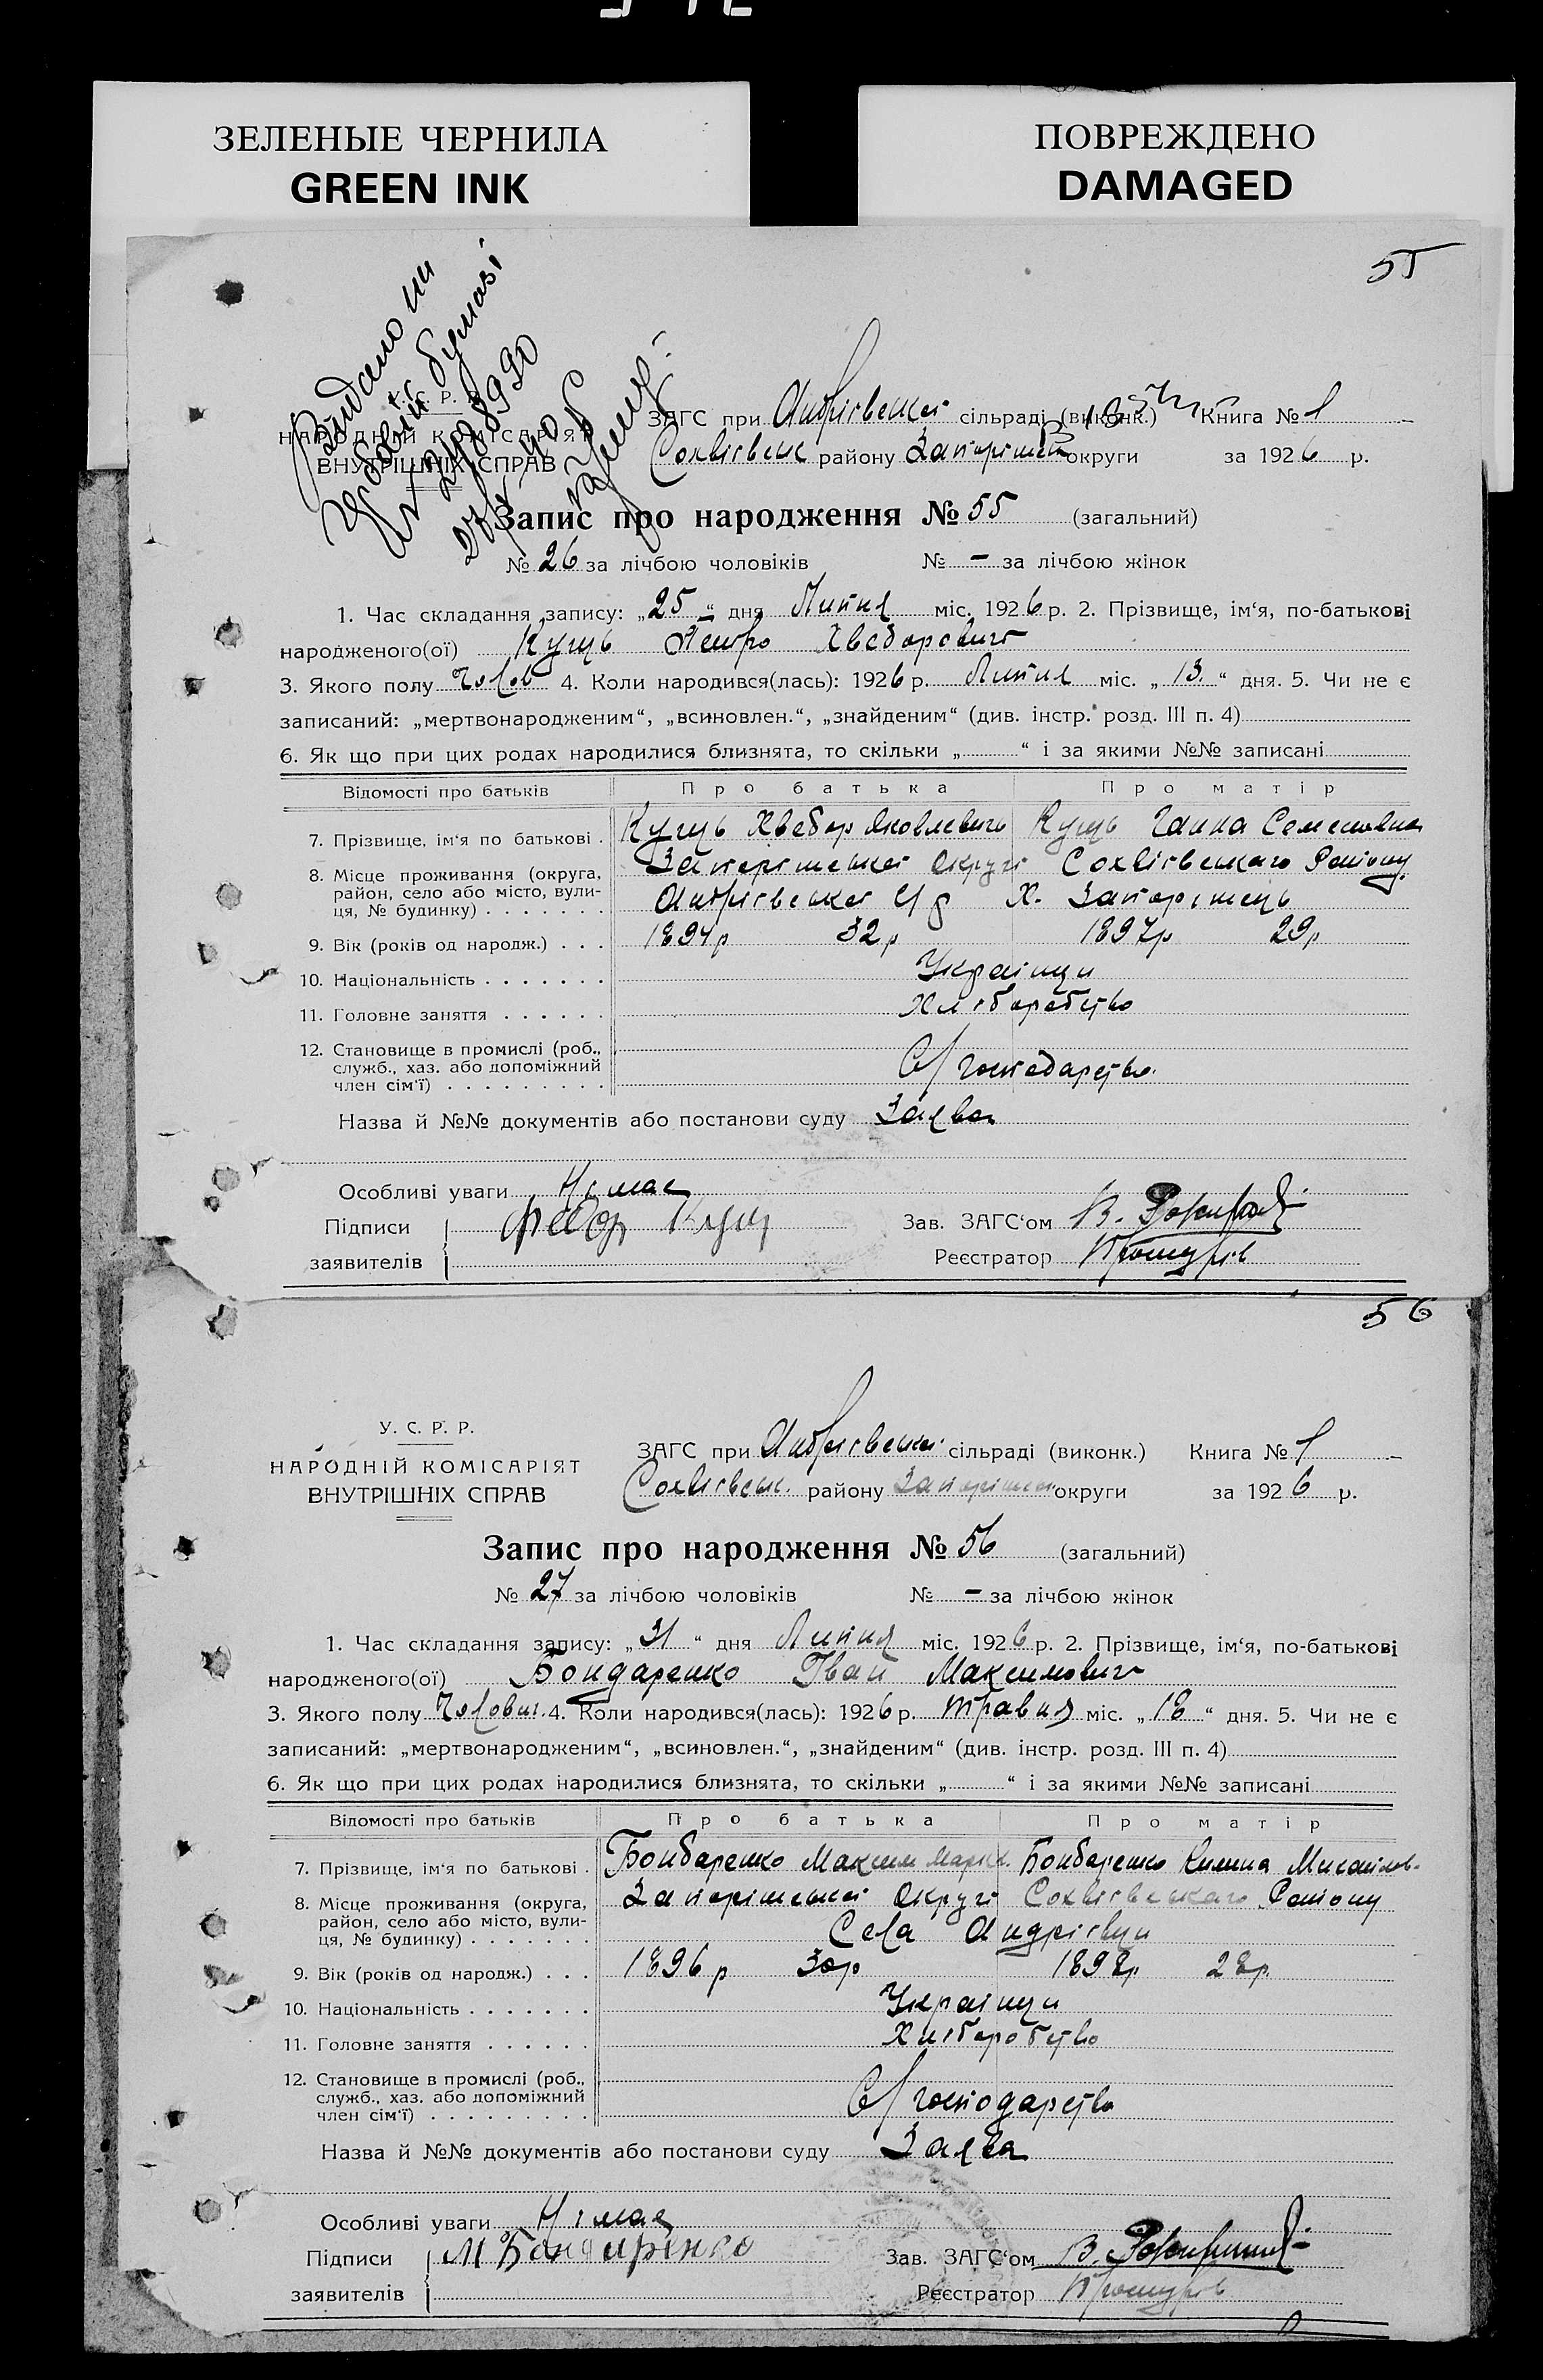 ЗЕЛЕНЫЕ ЧЕРНИЛА
GREEN INK
ПОВРЕЖДЕНО
DAMAGED
55
У. С. Р. Р.
НАРОДНІЙ КОМІСАРІЯТ
ВНУТРІШНІХ СПРАВ
ЗАГС при Андріївської сільраді (виконк.) Книга № 1
району округи за 1926 р.
Запис про народження № 55 (загальний)
№ 26 за лічбою чоловіків № - за лічбою жінок
1. Час складання запису: „25“ дня Липня міс. 1926 р. 2. Прізвище, ім‘я, по-батькові
народженого(ої) Куць Петро Хведорович
3. Якого полу Чолов 4. Коли народився(лась): 1926 р. Липня міс. „13.“ дня. 5. Чи не є
записаний: „мертвонародженим“, „всиновлен.“, „знайденим“ (див. інстр. розд. III п. 4)
6. Як що при цих родах народилися близнята, то скільки „ “ і за якими №№ записані
Відомості про батьків Про батька Про матір
7. Прізвище, ім‘я по батькові . Куць Хведор Яковлевич Куць Ганна Семеновна
8. Місце проживання (округа, район, село або місто, вулиця, № будинку) Запоріжської Округи Софіївського Району
Х. Запоріжець
9. Вік (років од народж.) . . . 1894р 32р 1897р 29р
10. Національність . . . . . . . Українци
11. Головне заняття . . . . . . Хліборобство
12. Становище в промислі (роб.,
служб., хаз. або допоміжний
член сім‘ї) . . . . . . . . . С/господарство.
Назва й №№ документів або постанови суду Заява
Особливі уваги Німає
Підписи Федор Куц Зав. ЗАГС‘ом В.
заявителів Реєстратор
56
У. С. Р. Р.
НАРОДНІЙ КОМІСАРІЯТ
ВНУТРІШНІХ СПРАВ
ЗАГС при Андріївської сільраді (виконк.) Книга № 1
району округи за 1926 р.
Запис про народження № 56 (загальний)
№ 27 за лічбою чоловіків № - за лічбою жінок
1. Час складання запису: „31“ дня Липня міс. 1926 р. 2. Прізвище, ім‘я, по-батькові
народженого(ої) Бондаренко Іван Максимович
3. Якого полу Чолович. 4. Коли народився(лась): 1926 р. травня міс. „18“ дня. 5. Чи не є
записаний: „мертвонародженим“, „всиновлен.“, „знайденим“ (див. інстр. розд. III п. 4)
6. Як що при цих родах народилися близнята, то скільки „ “ і за якими №№ записані
Відомості про батьків Про батька Про матір
7. Прізвище, ім‘я по батькові . Бондаренко Максим Бондаренко Килина
8. Місце проживання (округа, район, село або місто, вулиця, № будинку) Запоріжської Округи Софіївського Району
Села Андрієвци
9. Вік (років од народж.) . . . 1896р 30р 1898р 28р
10. Національність . . . . . . . Українци
11. Головне заняття . . . . . . Хліборобство
12. Становище в промислі (роб.,
служб., хаз. або допоміжний
член сім‘ї) . . . . . . . . . С/господарство
Назва й №№ документів або постанови суду Заява
Особливі уваги Німає
Підписи М Бондаренко Зав. ЗАГС‘ом В.
заявителів Реєстратор